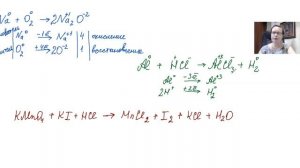 Na⁰ + O₂⁰ → 2Na₂⁺¹O⁻²
Na⁰ -1ē→ Na⁺¹ | 4 | окисление
O₂⁰ +4ē→ 2O⁻² | 1 | восстановление
Al⁰ + HCl → AlCl₃ + H₂⁰
Al⁰ -3ē→ Al⁺³
2H⁺ +2ē→ H₂⁰
KMnO₄ + KI + HCl → MnCl₂ + I₂ + KCl + H₂O